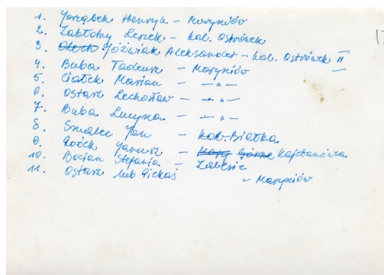 1. Jarząbek Henryk - Maryniów
2. Zabłotny Leszek - kol. Ostrówek
3. Jóźwiak Aleksander - kol. Ostrówek II
4. Buba Tadeusz - Maryniów
5. Ciołek Marian - -"-
6. Ostasz Lechosław - -"-
7. Buba Lucyna - -"-
8. Smalec Jan - kol. Białka
9. Janusz - Kajetanówka
10. Bocian Stefania - Zalesie
11. Ostasz lub Fickoś - Maryniów